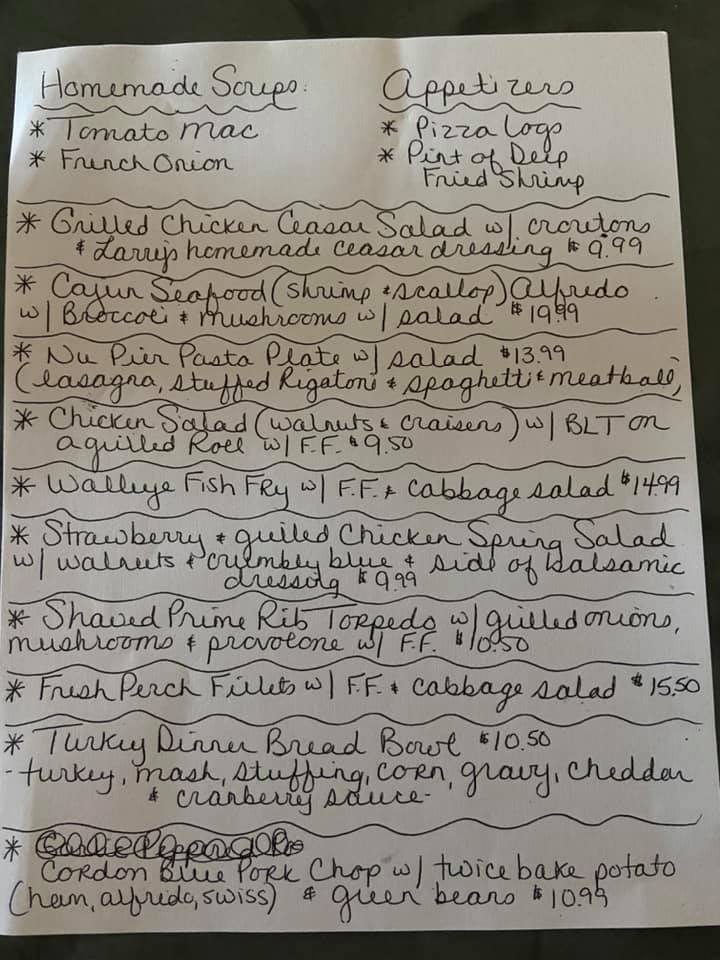 Homemade Soups:
* Tomato Mac
* French Onion
Appetizers
* Pizza Logs
* Pint of Deep
Fried Shrimp
* Grilled Chicken Ceasar Salad w/ croutons
& Larry's homemade ceasar dressing $9.99
* Cajun Seafood (shrimp & scallop) Alfredo
w/ Broccoli & mushrooms w/ salad $19.99
* Nu Pier Pasta Plate w/ salad $13.99
(lasagna, stuffed Rigatoni & spaghetti & meatball)
* Chicken Salad (walnuts & craisens) w/ BLT on
a grilled Roll w/ F.F. $9.50
* Walleye Fish Fry w/ F.F. & cabbage salad $14.99
* Strawberry & grilled Chicken Spring Salad
w/ walnuts & crumbly blue & side of balsamic
dressing $9.99
* Shaved Prime Rib Torpedo w/ grilled onions,
mushrooms & provolone w/ F.F. $10.50
* Fresh Perch Fillets w/ F.F. & cabbage salad $15.50
* Turkey Dinner Bread Bowl $10.50
- turkey, mash, stuffing, corn, gravy, cheddar
& cranberry sauce -
*
Cordon Blue Pork Chop w/ twice bake potato
(ham, alfredo, swiss) & green beans $10.99